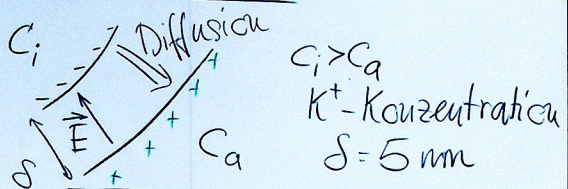 C_i
Diffusion
E⃗
δ
C_a
C_i > C_a
K⁺-Konzentration
δ = 5 nm